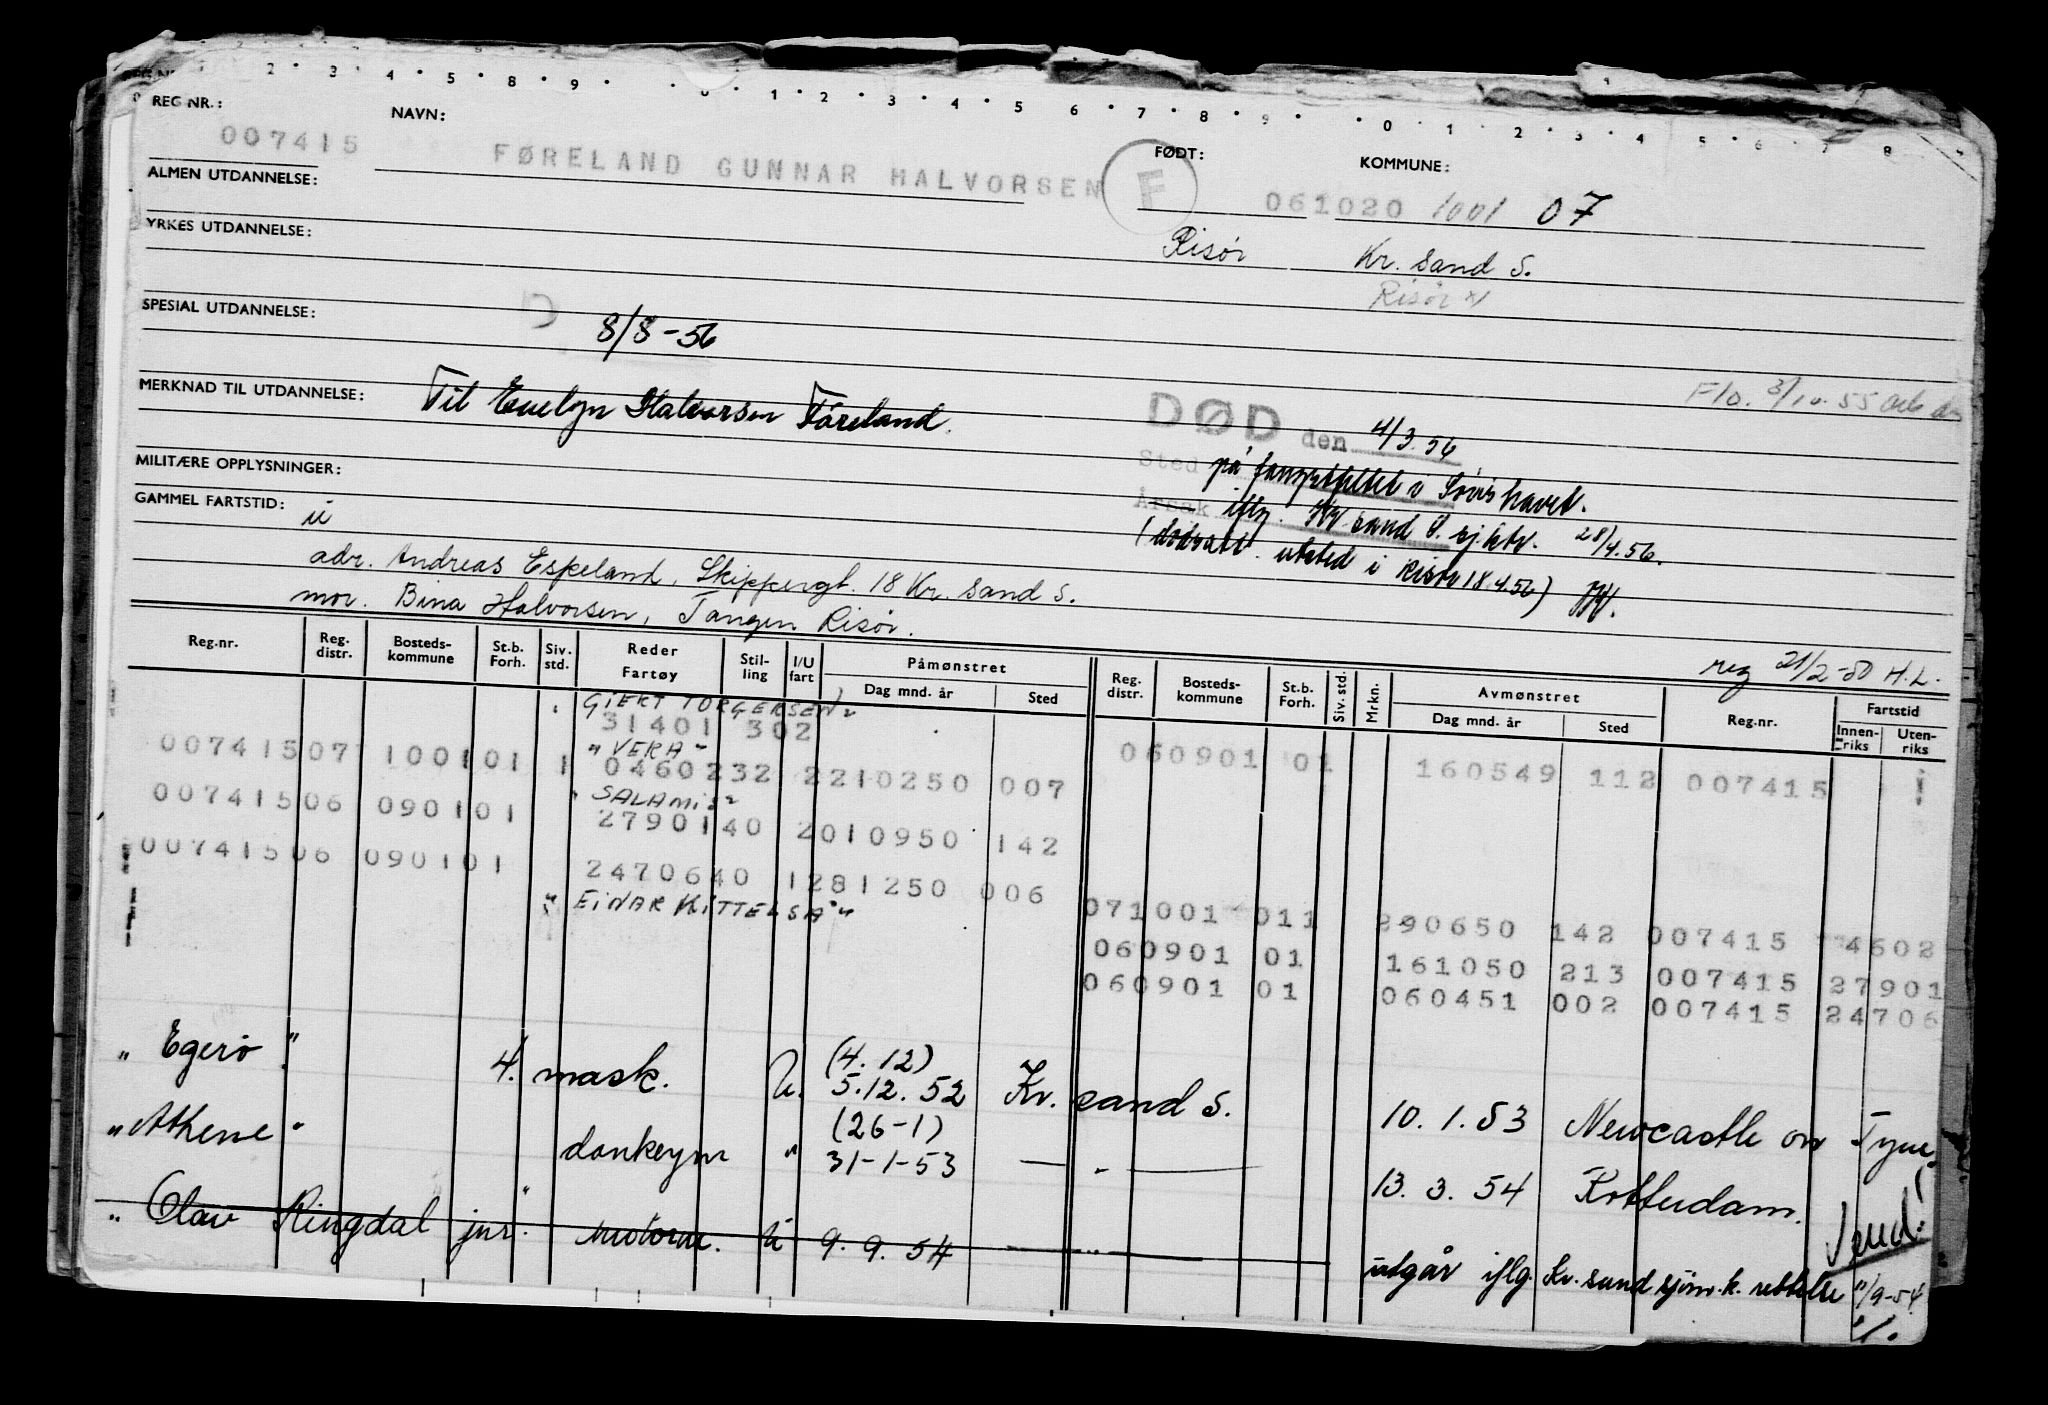 REG NR.:
NAVN:
FØDT:
KOMMUNE:
007415
FØRELAND GUNNAR HALVORSEN
F
061020 1001 07
ALMEN UTDANNELSE:
Risør
Kr. sand S.
Risør
YRKES UTDANNELSE:
SPESIAL UTDANNELSE:
8/8-56
MERKNAD TIL UTDANNELSE:
Til Evelyn Halvorsen Føreland.
Flo. 3/10.55
DØD den 4/3.56
Sted på fangstfeltet i Sørishavet.
Årsak iflg. Kr sand S. sj.ktr. 28/4.56.
(dødsatt. utsted i Risør 18.4.56)
MILITÆRE OPPLYSNINGER:
GAMMEL FARTSTID:
u
adr. Andreas Espeland, Skippergt. 18 Kr. sand S.
mor. Bina Halvorsen, Tangen Risør.
reg 21/2-50 H.L.
Reg.nr. Reg. distr. Bosteds- kommune St.b. Forh. Siv. std. Reder Fartøy Stil- ling I/U fart Påmønstret Dag mnd. år Sted
Reg. distr. Bosteds- kommune St.b. Forh. Siv. std. Mrkn. Avmønstret Dag mnd. år Sted Reg.nr. Fartstid Innen- riks Uten- riks
"GIERT TORGERSEN"
31401 302
060901 01 160549 112 007415
"VERA"
00741507 100101 1 0460232 2210250 007
"SALAMIS"
00741506 090101 2790140 2010950 142
00741506 090101 2470640 1281250 006
"EINAR KITTELSA"
071001 011 290650 142 007415 4602
060901 01 161050 213 007415 27901
060901 01 060451 002 007415 24706
"Egerø" 4. mask. U. (4.12) 5.12.52 Kr. sand S. 10.1.53 Newcastle on Tyne
"Athene" donkeym " (26-1) 31-1-53 — " — 13.3.54 Rotterdam.
"Olav Ringdal jnr." motorm. U 9.9.54 — " — utgår iflg. Kr. sand sjøm.k. rettelse 11/9-54